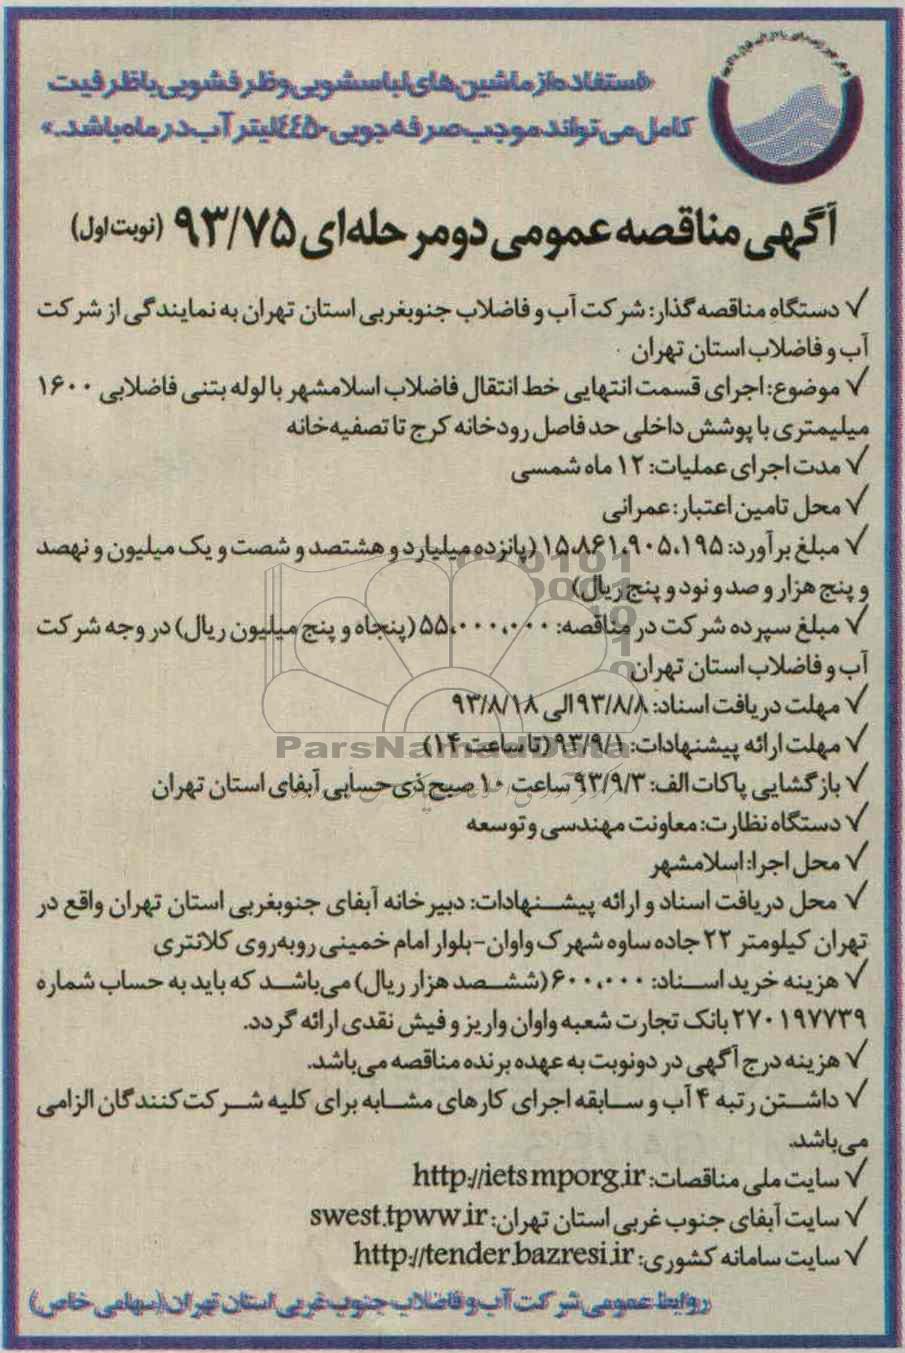 «استفاده از ماشین های لباسشویی و ظرفشویی با ظرفیت
کامل می تواند موجب صرفه جویی ۴۴۵۰ لیتر آب در ماه باشد.»
آگهی مناقصه عمومی دو مرحله ای ۹۳/۷۵ (نوبت اول)
√ دستگاه مناقصه گذار: شرکت آب و فاضلاب جنوبغربی استان تهران به نمایندگی از شرکت
آب و فاضلاب استان تهران
√ موضوع: اجرای قسمت انتهایی خط انتقال فاضلاب اسلامشهر با لوله بتنی فاضلابی ۱۶۰۰
میلیمتری با پوشش داخلی حد فاصل رودخانه کرج تا تصفیه خانه
√ مدت اجرای عملیات: ۱۲ ماه شمسی
√ محل تامین اعتبار: عمرانی
√ مبلغ برآورد: ۱۵،۸۶۱،۹۰۵،۱۹۵ (پانزده میلیارد و هشتصد و شصت و یک میلیون و نهصد
و پنج هزار و صد و نود و پنج ریال)
√ مبلغ سپرده شرکت در مناقصه: ۵۵،۰۰۰،۰۰۰ (پنجاه و پنج میلیون ریال) در وجه شرکت
آب و فاضلاب استان تهران
√ مهلت دریافت اسناد: ۹۳/۸/۸ الی ۹۳/۸/۱۸
√ مهلت ارائه پیشنهادات: ۹۳/۹/۱ (تا ساعت ۱۴)
ParsNamadData
√ بازگشایی پاکات الف: ۹۳/۹/۳ ساعت ۱۰ صبح ذی حسابی آبفای استان تهران
√ دستگاه نظارت: معاونت مهندسی و توسعه
√ محل اجرا: اسلامشهر
√ محل دریافت اسناد و ارائه پیشنهادات: دبیرخانه آبفای جنوبغربی استان تهران واقع در
تهران کیلومتر ۲۲ جاده ساوه شهرک واوان-بلوار امام خمینی روبه روی کلانتری
√ هزینه خرید اسناد: ۶۰۰،۰۰۰ (ششصد هزار ریال) می باشد که باید به حساب شماره
۲۷۰۱۹۷۷۳۹ بانک تجارت شعبه واوان واریز و فیش نقدی ارائه گردد.
√ هزینه درج آگهی در دو نوبت به عهده برنده مناقصه می باشد.
√ داشتن رتبه ۴ آب و سابقه اجرای کارهای مشابه برای کلیه شرکت کنندگان الزامی
می باشد.
√ سایت ملی مناقصات: http://iets.mporg.ir
√ سایت آبفای جنوب غربی استان تهران: swest.tpww.ir
√ سایت سامانه کشوری: http://tender.bazresi.ir
روابط عمومی شرکت آب و فاضلاب جنوب غربی استان تهران (سهامی خاص)